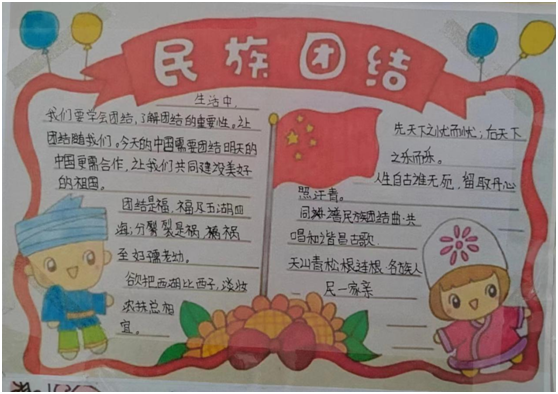 民族团结
生活中,
我们要学会团结,了解团结的重要性。让
团结随我们。今天的中国需要团结明天的
中国更需合作,让我们共同建设美好
的祖国。
团结是福,福及五湖四
海;分裂是祸,祸
至妇孺老幼。
欲把西湖比西子,淡妆
浓抹总相
宜。
先天下之忧而忧;后天下
之乐而乐。
人生自古谁无死,留取丹心
照汗青。
民族团结曲·共
唱和谐昌古歌
天山青松根连根·各族人
民一家亲